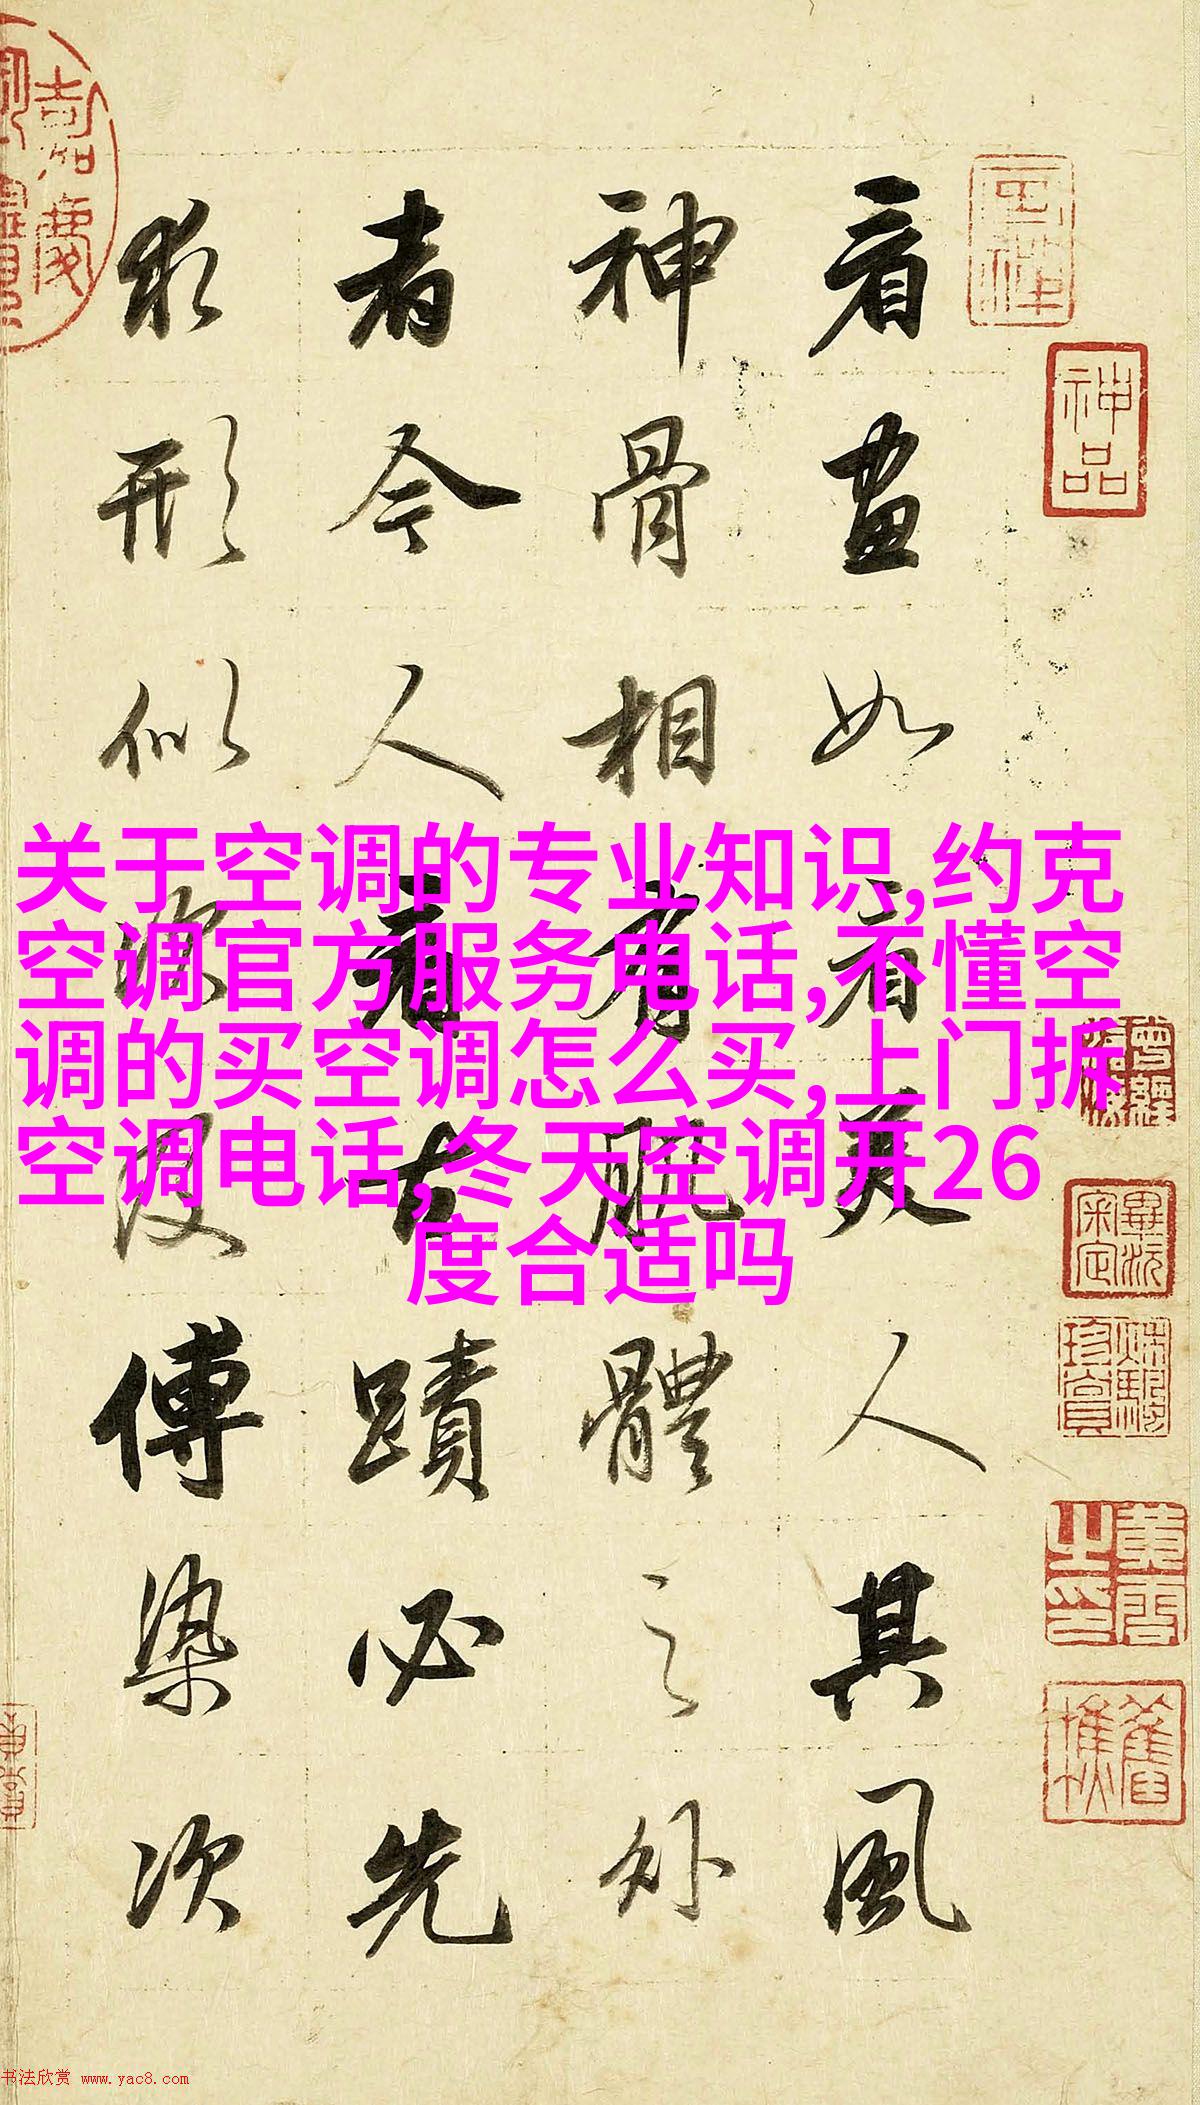 看畫如看美人其風
神骨相有肌體之外
者今人看古蹟必先
求形似次及傅染次
神品
畢沅審定
关于空调的专业知识,约克
空调官方服务电话,不懂空
调的买空调怎么买,上门拆
空调电话,冬天空调开26
度合适吗
书法欣赏 www.yac8.com